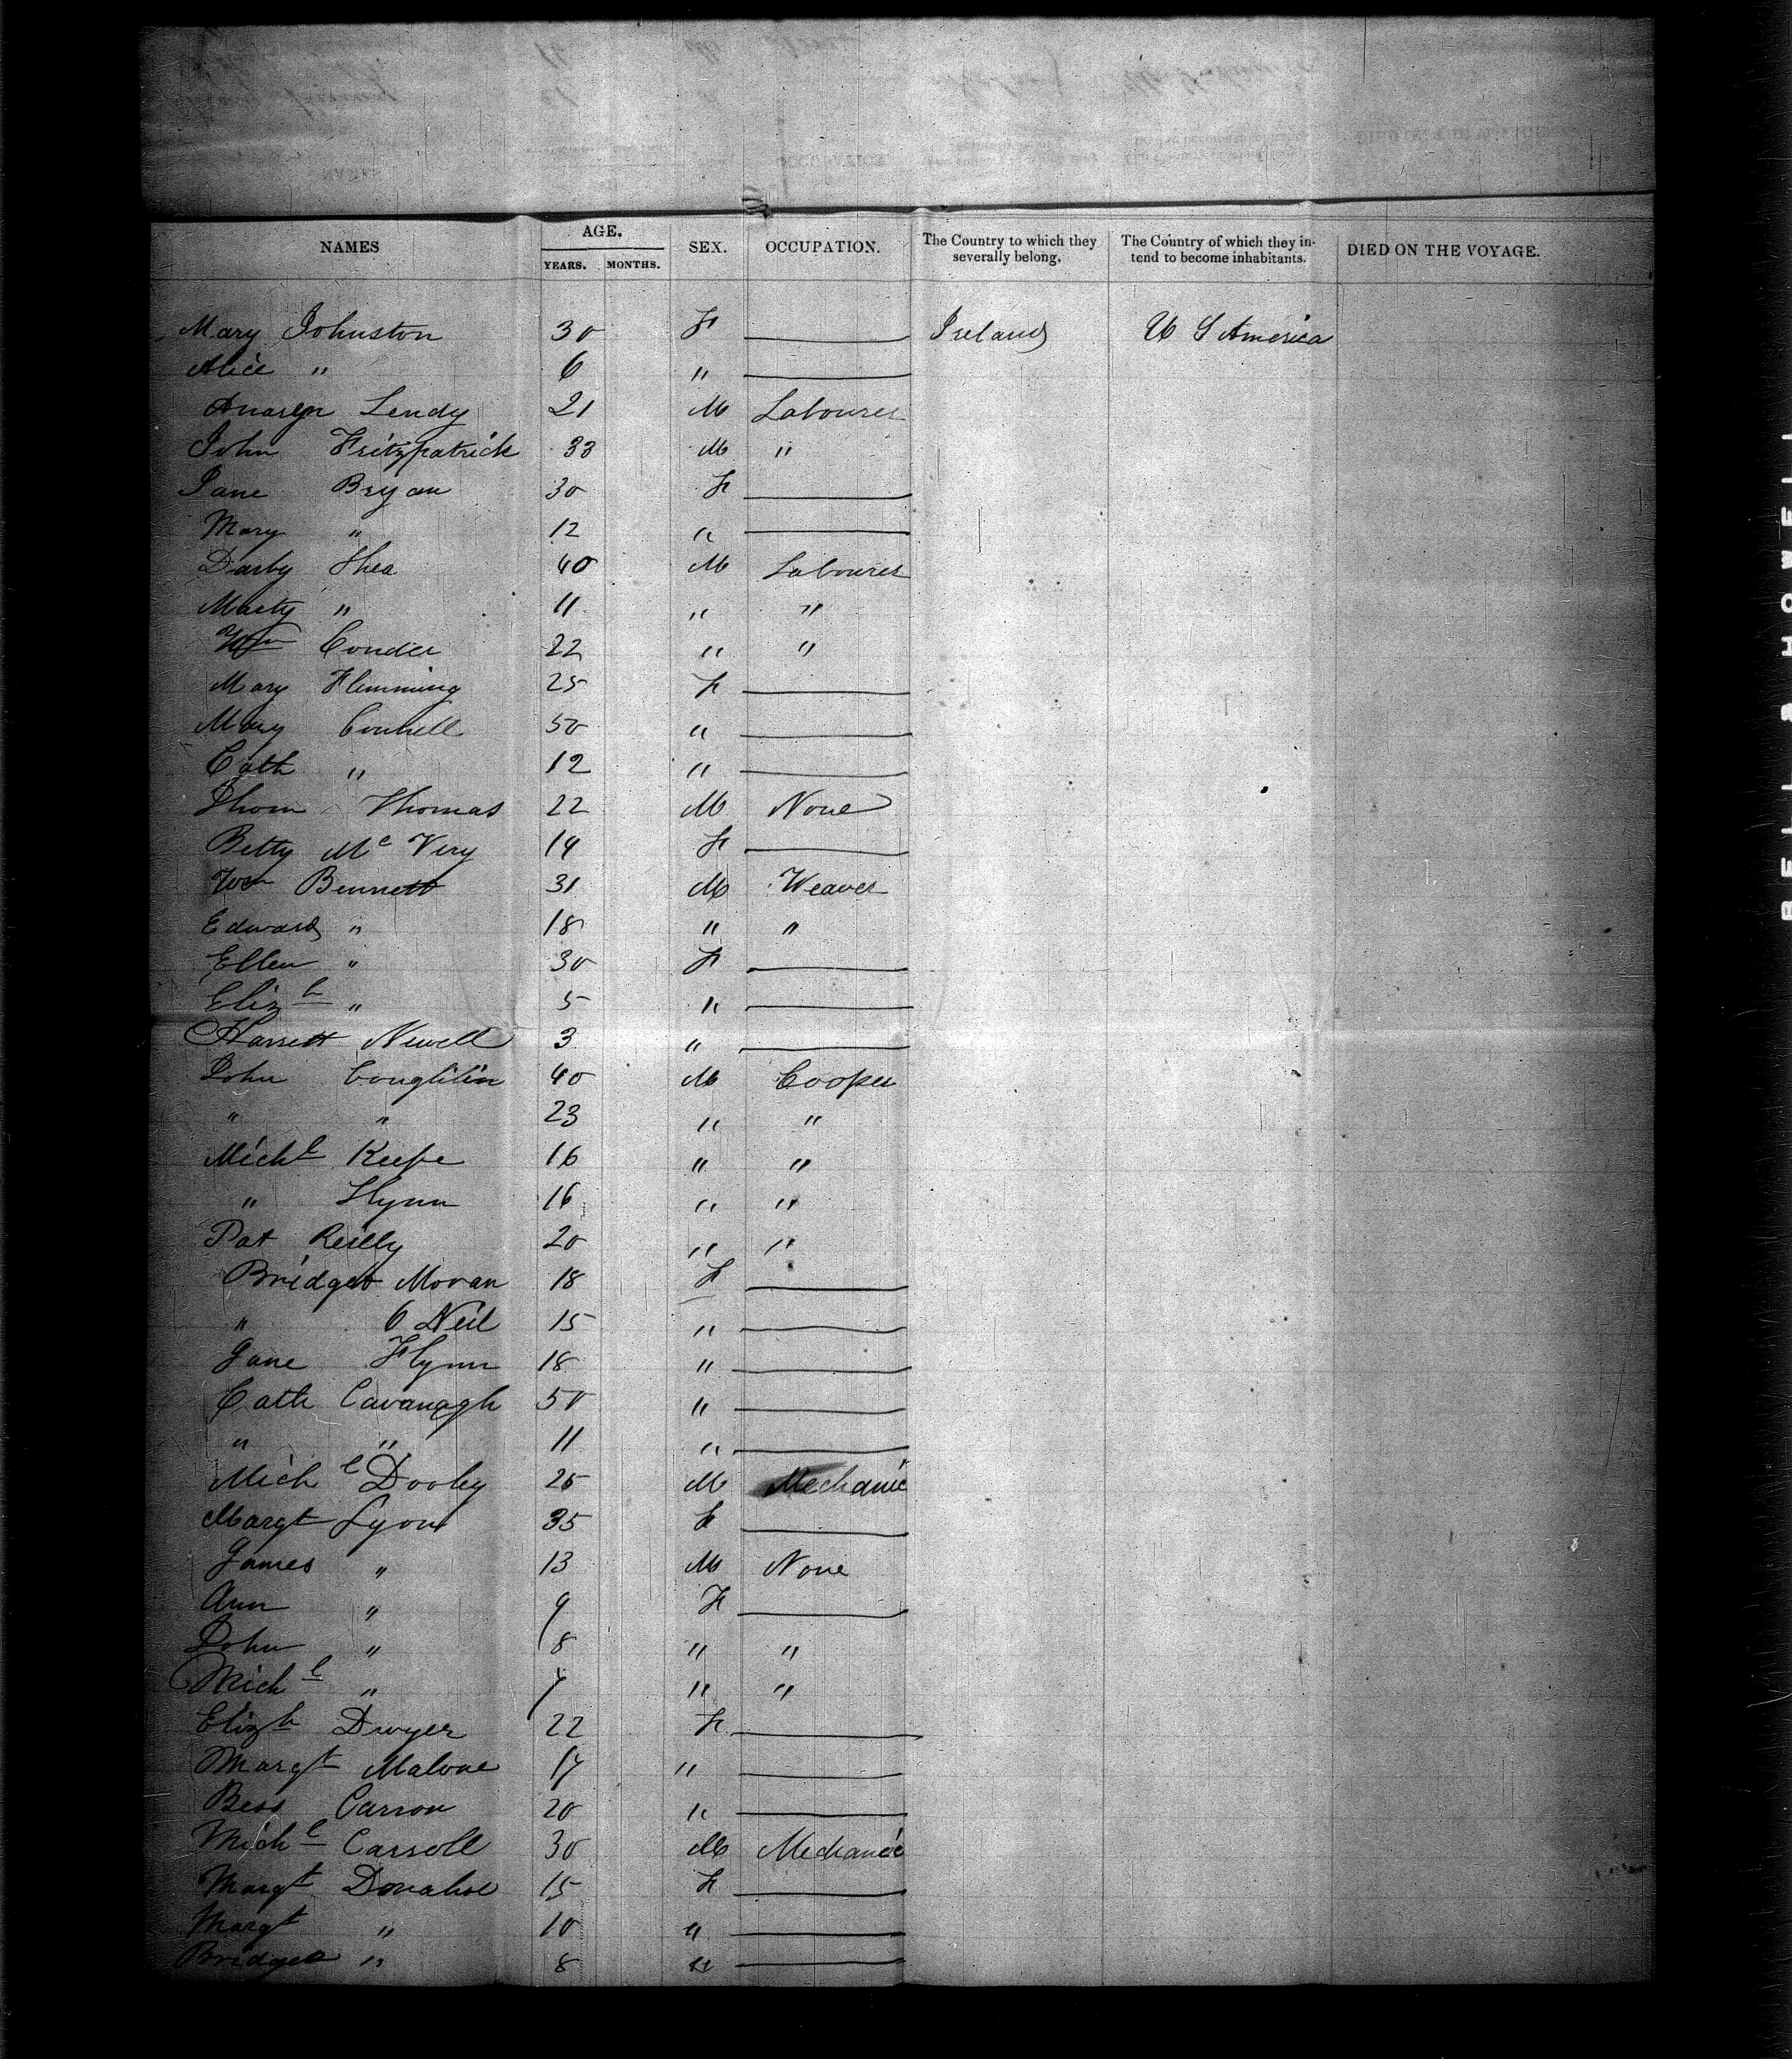 NAMES AGE. YEARS. MONTHS. SEX. OCCUPATION. The Country to which they severally belong. The Country of which they intend to become inhabitants. DIED ON THE VOYAGE.
Mary Johnston 30 F Ireland U S America
Alice " 6 "
Lendy 21 M Labourer
John Fritzpatrick 33 M "
Jane Bryan 30 F
Mary " 12 "
Darby Shea 40 M Labourer
Marty " 11 " "
Wm Conder 22 " "
Mary Flemming 25 F
Mary Connell 50 "
Cath " 12 "
Thom Thomas 22 M None
Betty Mc Very 14 F
Wm Bennett 31 M Weaver
Edward " 18 " "
Ellen " 30 F
Elizh " 5 "
Harrett Newell 3 "
John Coughlilin 40 M Cooper
" " 23 " "
Michl Keefe 16 " "
" Flynn 16 " "
Pat Reilly 20 " "
Bridget Moran 18 F
" O Neil 15 "
Jane Flynn 18 "
Cath Cavanagh 50 "
" " 11 "
Michl Dooley 25 M Mechanic
Margt Lyons 35 F
James " 13 M None
Ann " 9 F
John " 8 " "
Michl " 7 " "
Elizh Dwyer 22 F
Margt Malone 17 "
Bess Carron 20 "
Michl Carroll 30 M Mechanic
Margt Donahoe 15 F
Margt " 10 "
Bridget " 8 "
BELL & HOWELL